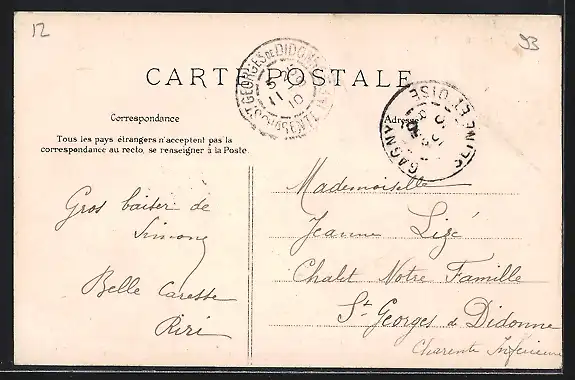 12
93
CARTE POSTALE
ST GEORGES DE DIDONNE
11 10
CHARENTE INF
GAGNY
SEINE ET OISE
Correspondance
Adresse
Tous les pays étrangers n'acceptent pas la
correspondance au recto, se renseigner à la Poste.
Gros baiser de
Simone
Belle Caresse
Riri
Mademoiselle
Jeanne Lizé
Chalet Notre Famille
St Georges de Didonne
Charente Inférieure